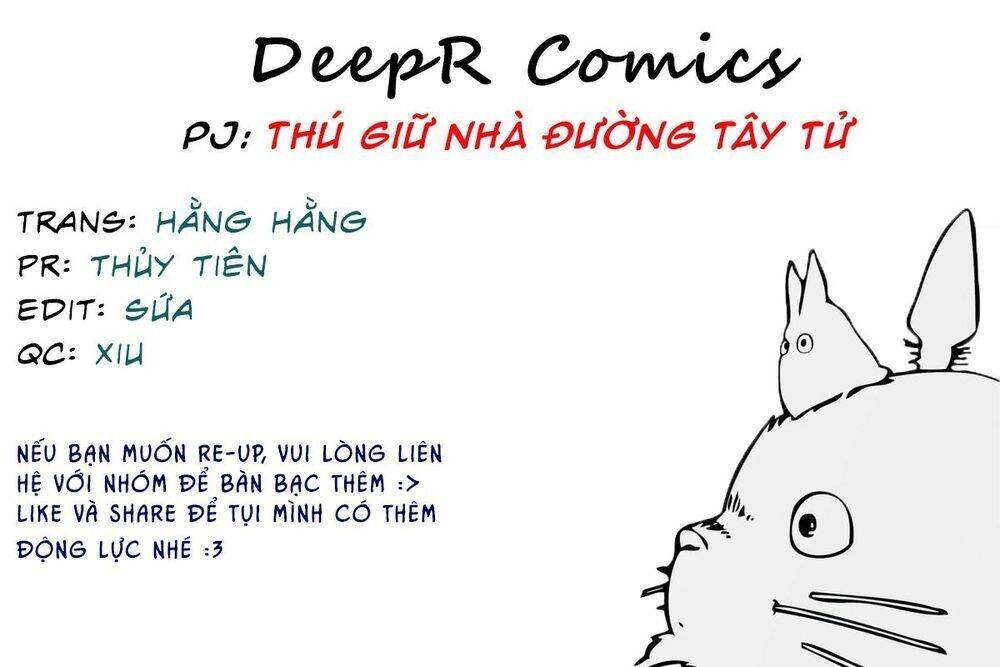 DeepR Comics
PJ: THÚ GIỮ NHÀ ĐƯỜNG TÂY TỬ
TRANS: HẰNG HẰNG
PR: THỦY TIÊN
EDIT: SỨA
QC: XIU
NẾU BẠN MUỐN RE-UP, VUI LÒNG LIÊN
HỆ VỚI NHÓM ĐỂ BÀN BẠC THÊM :>
LIKE VÀ SHARE ĐỂ TỤI MÌNH CÓ THÊM
ĐỘNG LỰC NHÉ :3